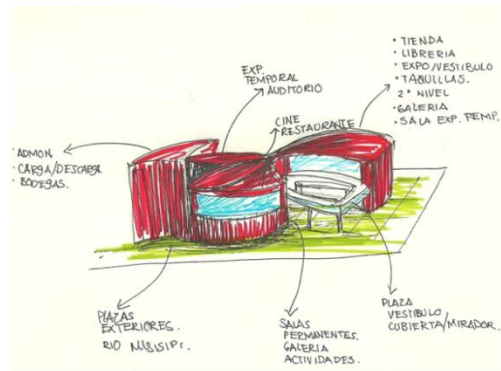 • TIENDA
• LIBRERIA
• EXPO/VESTIBULO
• TAQUILLAS.
2° NIVEL
• GALERIA
• SALA EXP. TEMP.
EXP.
TEMPORAL
AUDITORIO
CINE
RESTAURANTE
• ADMON.
• CARGA/DESCARGA
• BODEGAS.
PLAZAS
EXTERIORES.
RIO MISISIPI.
SALAS
PERMANENTES.
GALERIA
ACTIVIDADES.
PLAZA
VESTIBULO
CUBIERTA/MIRADOR.